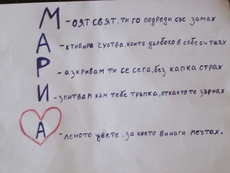 М - оят свят, ти го подреди със замах
А - ктивира чуства, които дълбоко в себе си таях
Р - азкривам ти се сега, без капка страх
И - зпитвам към тебе тръпка, откакто те зърнах
А - леното цвете, за което винаги мечтах.